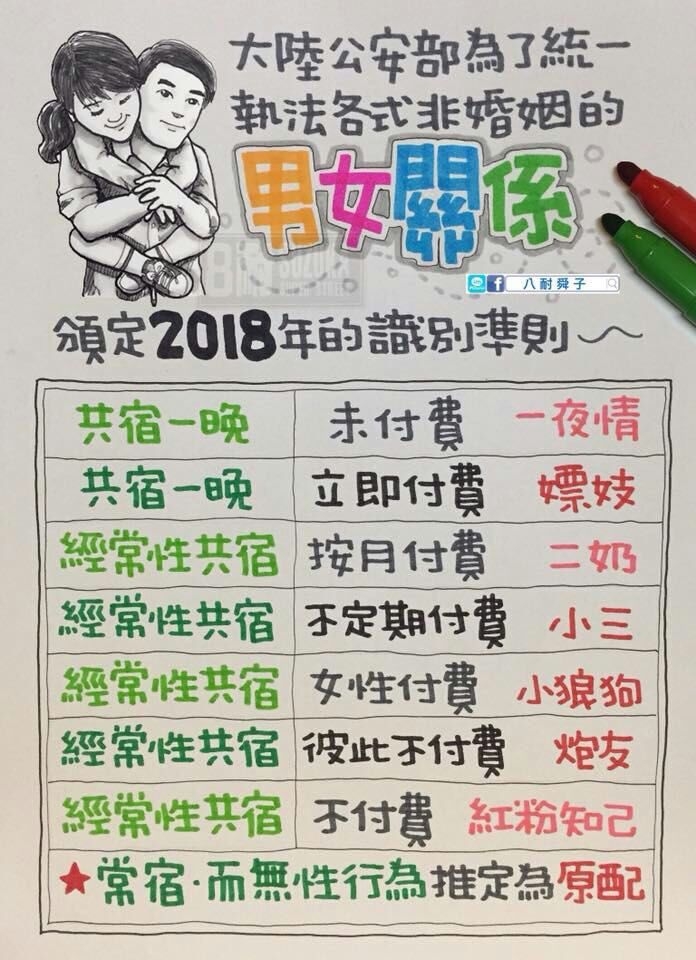 大陸公安部為了統一
執法各式非婚姻的
男女關係
八耐舜子
頒定2018年的識別準則
共宿一晚 未付費 一夜情
共宿一晚 立即付費 嫖妓
經常性共宿 按月付費 二奶
經常性共宿 不定期付費 小三
經常性共宿 女性付費 小狼狗
經常性共宿 彼此不付費 炮友
經常性共宿 不付費 紅粉知己
★常宿·而無性行為推定為原配